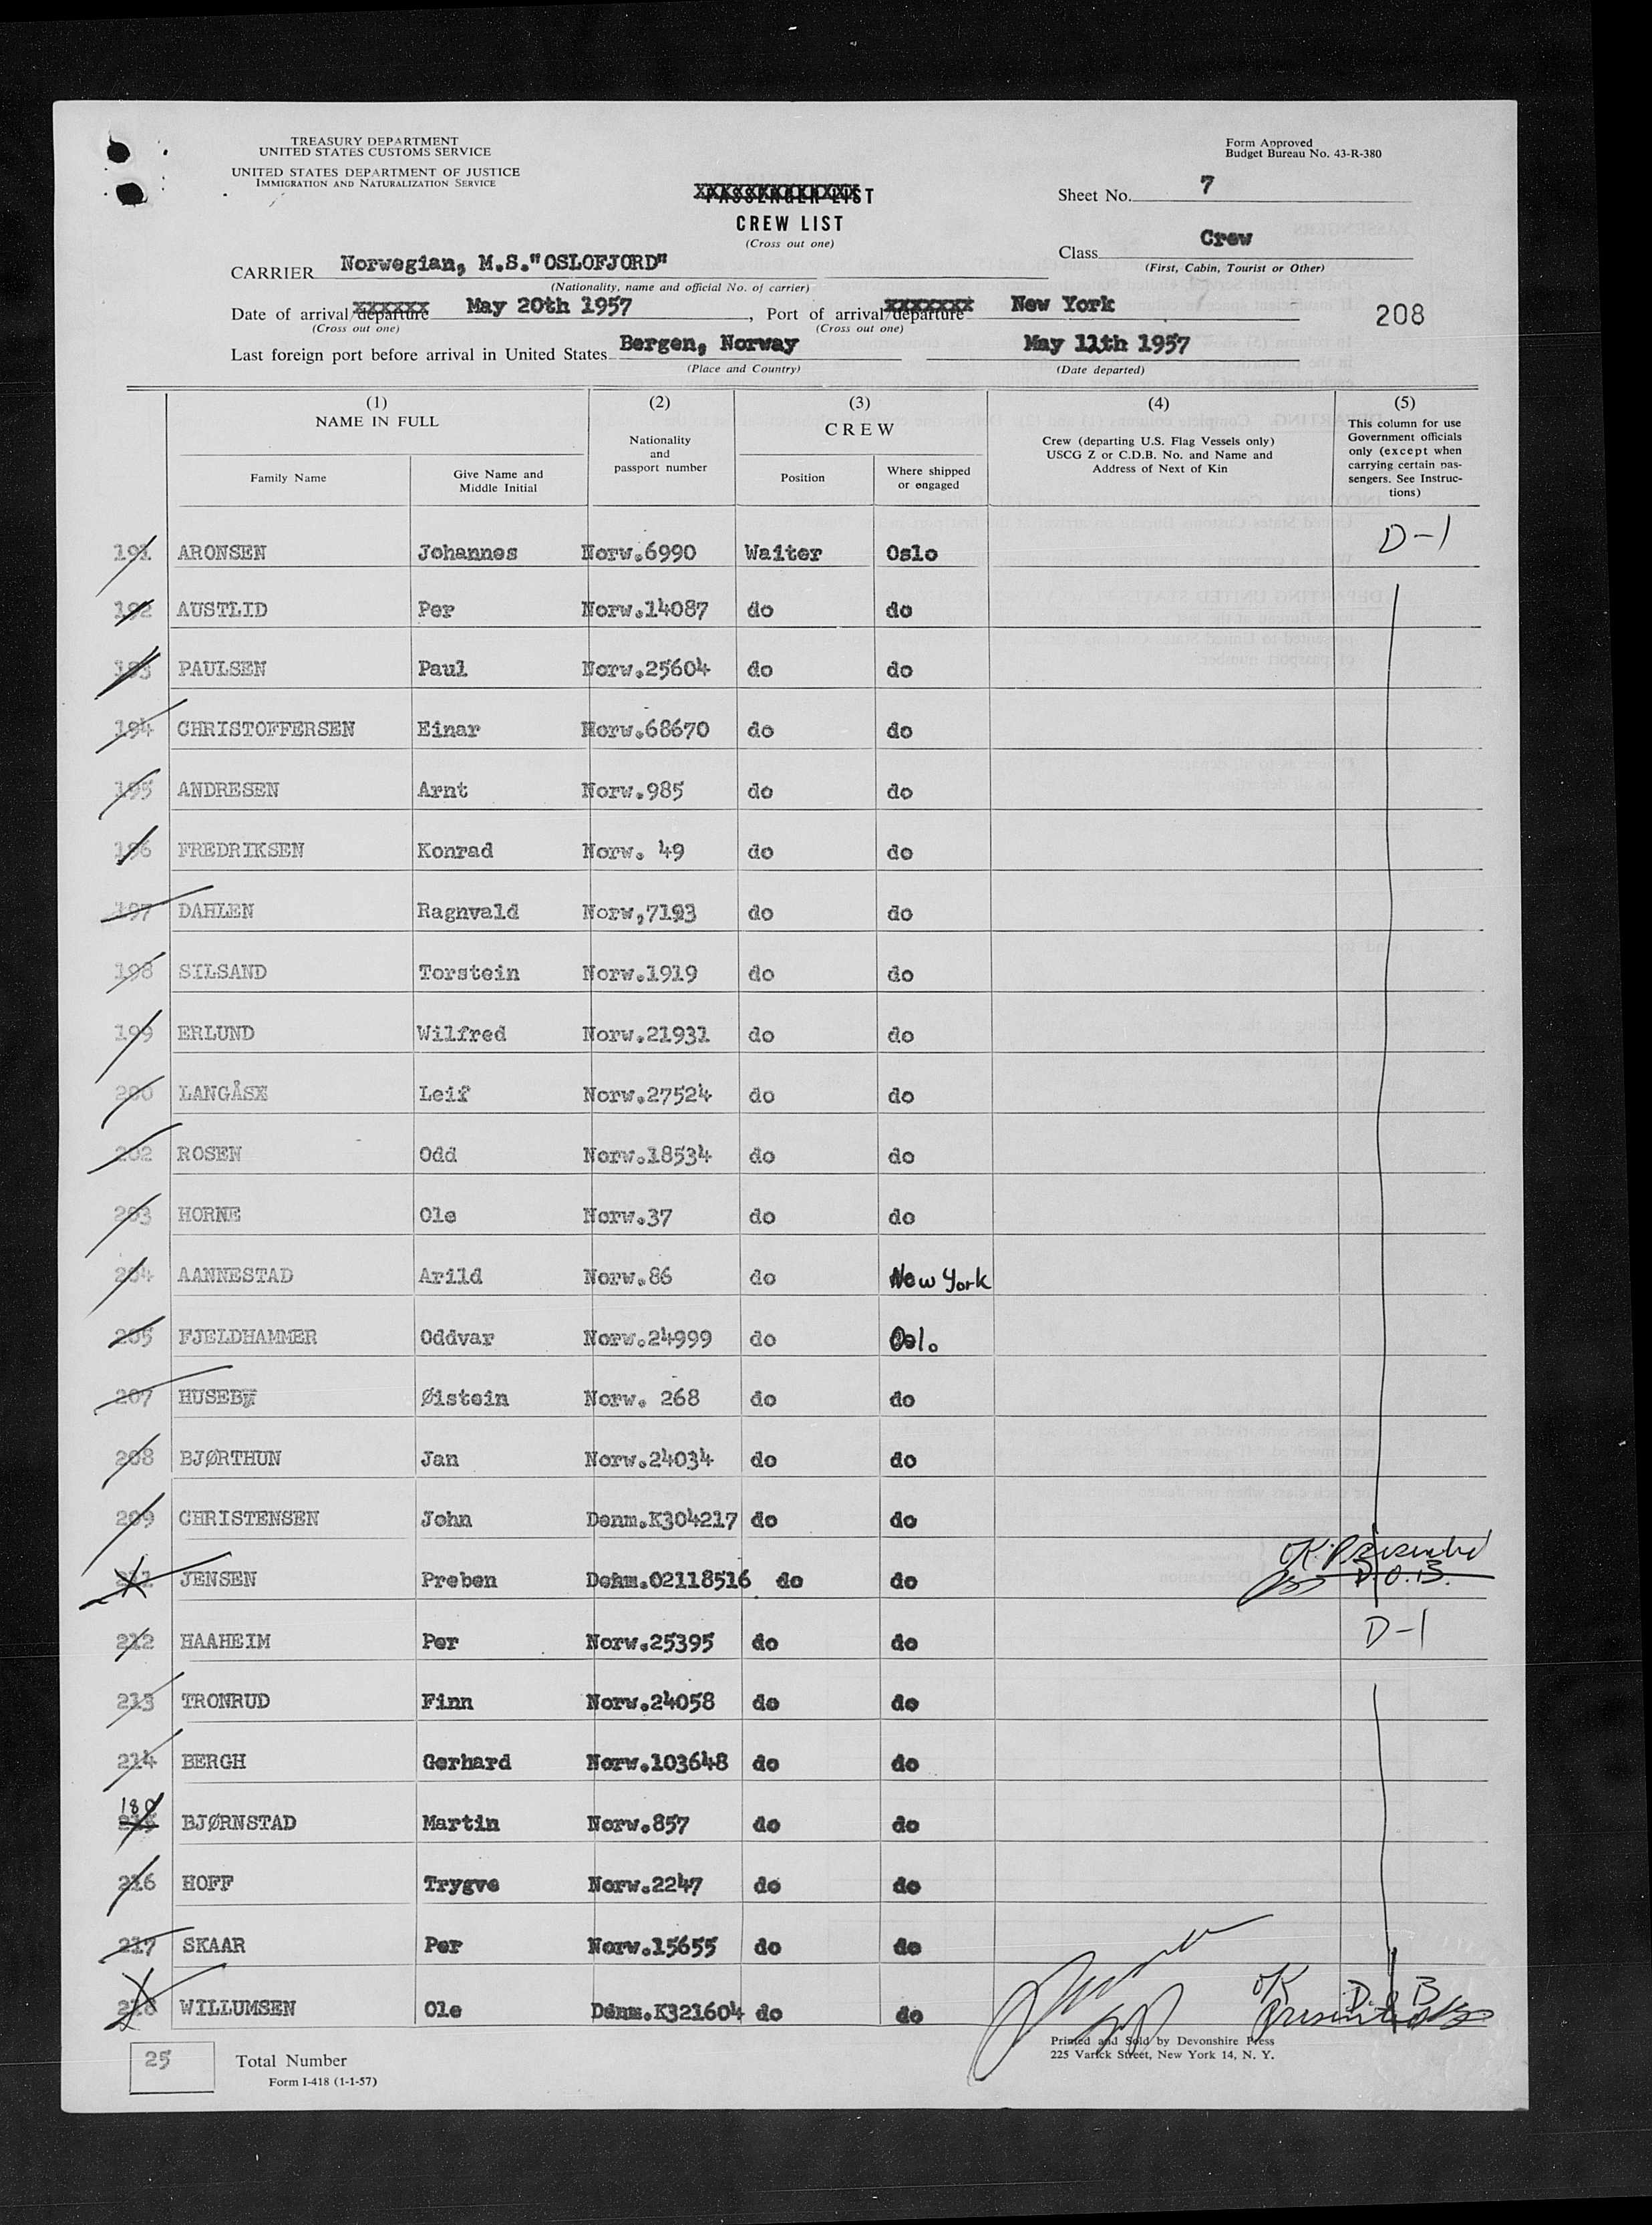 TREASURY DEPARTMENT
UNITED STATES CUSTOMS SERVICE
UNITED STATES DEPARTMENT OF JUSTICE
IMMIGRATION AND NATURALIZATION SERVICE
Form Approved
Budget Bureau No. 43-R-380
PASSENGER LIST
CREW LIST
(Cross out one)
Sheet No. 7
Class Crew
(First, Cabin, Tourist or Other)
CARRIER Norwegian, M.S."OSLOFJORD"
(Nationality, name and official No. of carrier)
Date of arrival/departure May 20th 1957, Port of arrival/departure New York
(Cross out one) (Cross out one)
208
Last foreign port before arrival in United States Bergen, Norway May 11th 1957
(Place and Country) (Date departed)
(1) (2) (3) (4) (5)
NAME IN FULL
Nationality and passport number
CREW
Crew (departing U.S. Flag Vessels only)
USCG Z or C.D.B. No. and Name and
Address of Next of Kin
This column for use
Government officials
only (except when
carrying certain pas-
sengers. See Instruc-
tions)
Family Name
Give Name and
Middle Initial
Position
Where shipped
or engaged
191 ARONSEN Johannes Norw.6990 Waiter Oslo D-1
192 AUSTLID Per Norw.14087 do do
193 PAULSEN Paul Norw.25604 do do
194 CHRISTOFFERSEN Einar Norw.68670 do do
195 ANDRESEN Arnt Norw.985 do do
196 FREDRIKSEN Konrad Norw. 49 do do
197 DAHLEN Ragnvald Norw,7193 do do
198 SILSAND Torstein Norw.1919 do do
199 ERLUND Wilfred Norw.21931 do do
200 LANGÅS Leif Norw.27524 do do
202 ROSEN Odd Norw.18534 do do
203 HORNE Ole Norw.37 do do
204 AANNESTAD Arild Norw.86 do New York
205 FJELDHAMMER Oddvar Norw.24999 do Oslo
207 HUSEBY Øistein Norw. 268 do do
208 BJØRTHUN Jan Norw.24034 do do
209 CHRISTENSEN John Denm.K304217 do do
OK Presented
211 JENSEN Preben Denm.02118516 do do D.O.B.
212 HAAHEIM Per Norw.25395 do do D-1
213 TRONRUD Finn Norw.24058 do do
214 BERGH Gerhard Norw.103648 do do
180
215 BJØRNSTAD Martin Norw.857 do do
216 HOFF Trygve Norw.2247 do do
217 SKAAR Per Norw.15655 do do
218 WILLUMSEN Ole Denm.K321604 do do OK D.O.B
Presented
25 Total Number
Form I-418 (1-1-57)
Printed and Sold by Devonshire Press
225 Varick Street, New York 14, N. Y.